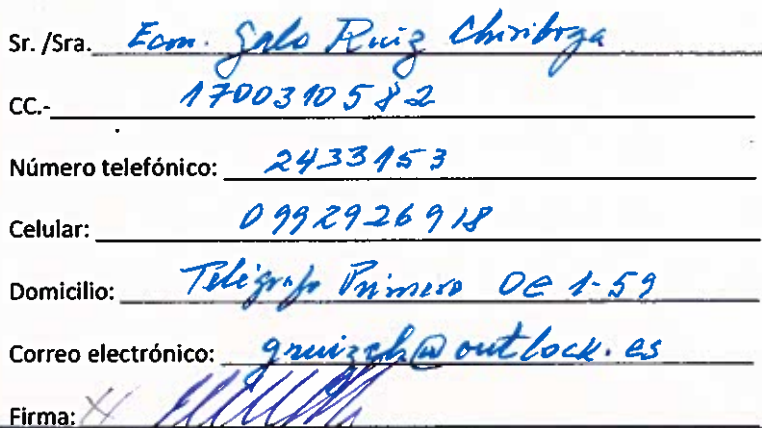 Sr. /Sra. Econ. Galo Ruiz Chiriboga
CC.- 1700310582
Número telefónico: 2433153
Celular: 0992926918
Domicilio: Telégrafo Primero Oe 1-59
Correo electrónico: gruizch@outlock.es
Firma: X